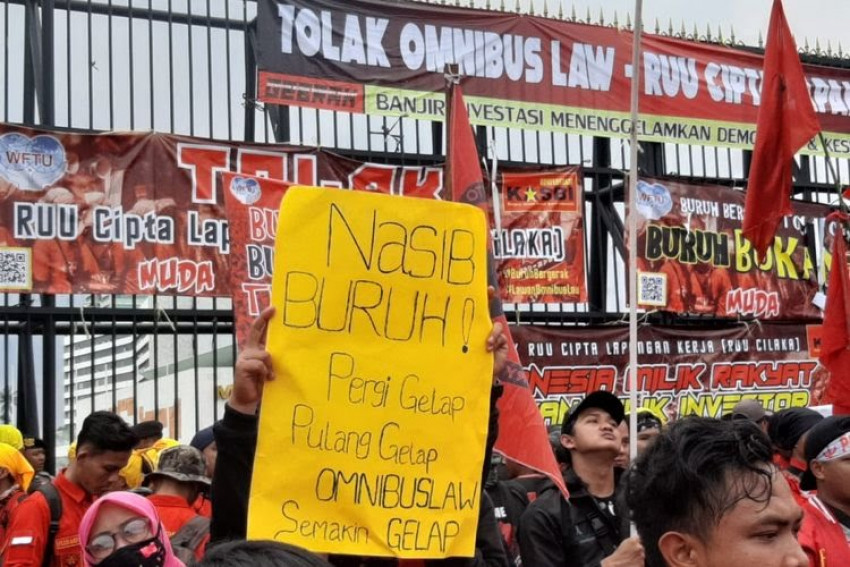 TOLAK OMNIBUS LAW - RUU CIPTA
GEBRAK
BANJIR INVESTASI MENENGGELAMKAN
WFTU
TOLAK
RUU Cipta
MUDA
KASBI
#BuruhBergerak
WFTU
BURUH
BURUH BUKAN
MUDA
RUU CIPTA LAPANGAN KERJA (RUU CILAKA)
MILIK RAKYAT
INVESTOR
NASIB
BURUH!
Pergi Gelap
Pulang Gelap
OMNIBUSLAW
Semakin GELAP